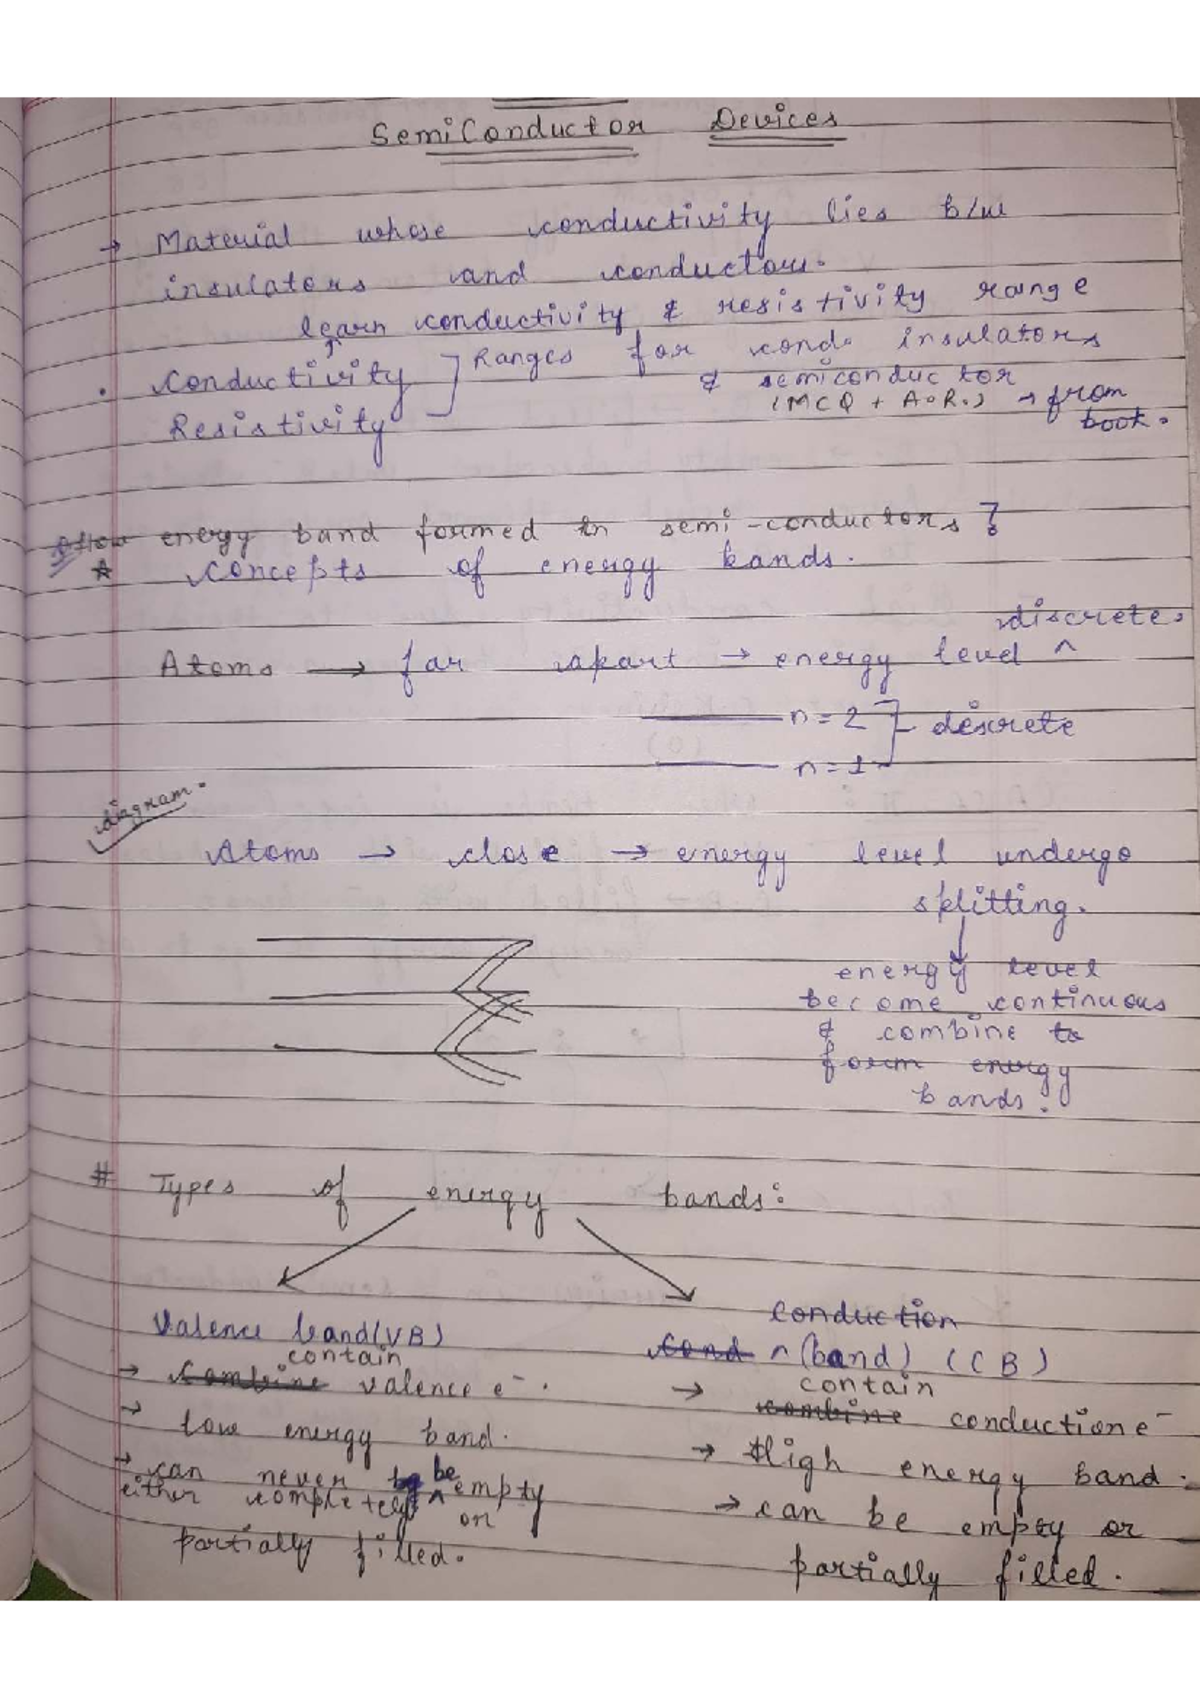 SemiConductor Devices
→ Material whose conductivity lies b/w
insulators and conductors.
learn conductivity & resistivity range
• Conductivity ] Ranges for cond. insulators
& semiconductor
Resistivity
(MCQ + A.R.) → from
book.
How energy band formed in semi-conductors ?
☆ Concepts of energy bands.
discrete.
Atoms → far apart → energy level ^
n = 2 ] discrete
n = 1
diagram.
Atoms → close → energy level undergo
splitting.
↓
energy level
become continuous
& combine to
form energy
bands.
# Types of energy bands:
Valence band (VB)
contain
→ Combine valence e⁻.
→ low energy band.
→ can never be empty
either completely ^ or
partially filled.
Conduction
Cond ^ (band) (CB)
contain
→ combine conduction e⁻
→ High energy band.
→ can be empty or
partially filled.